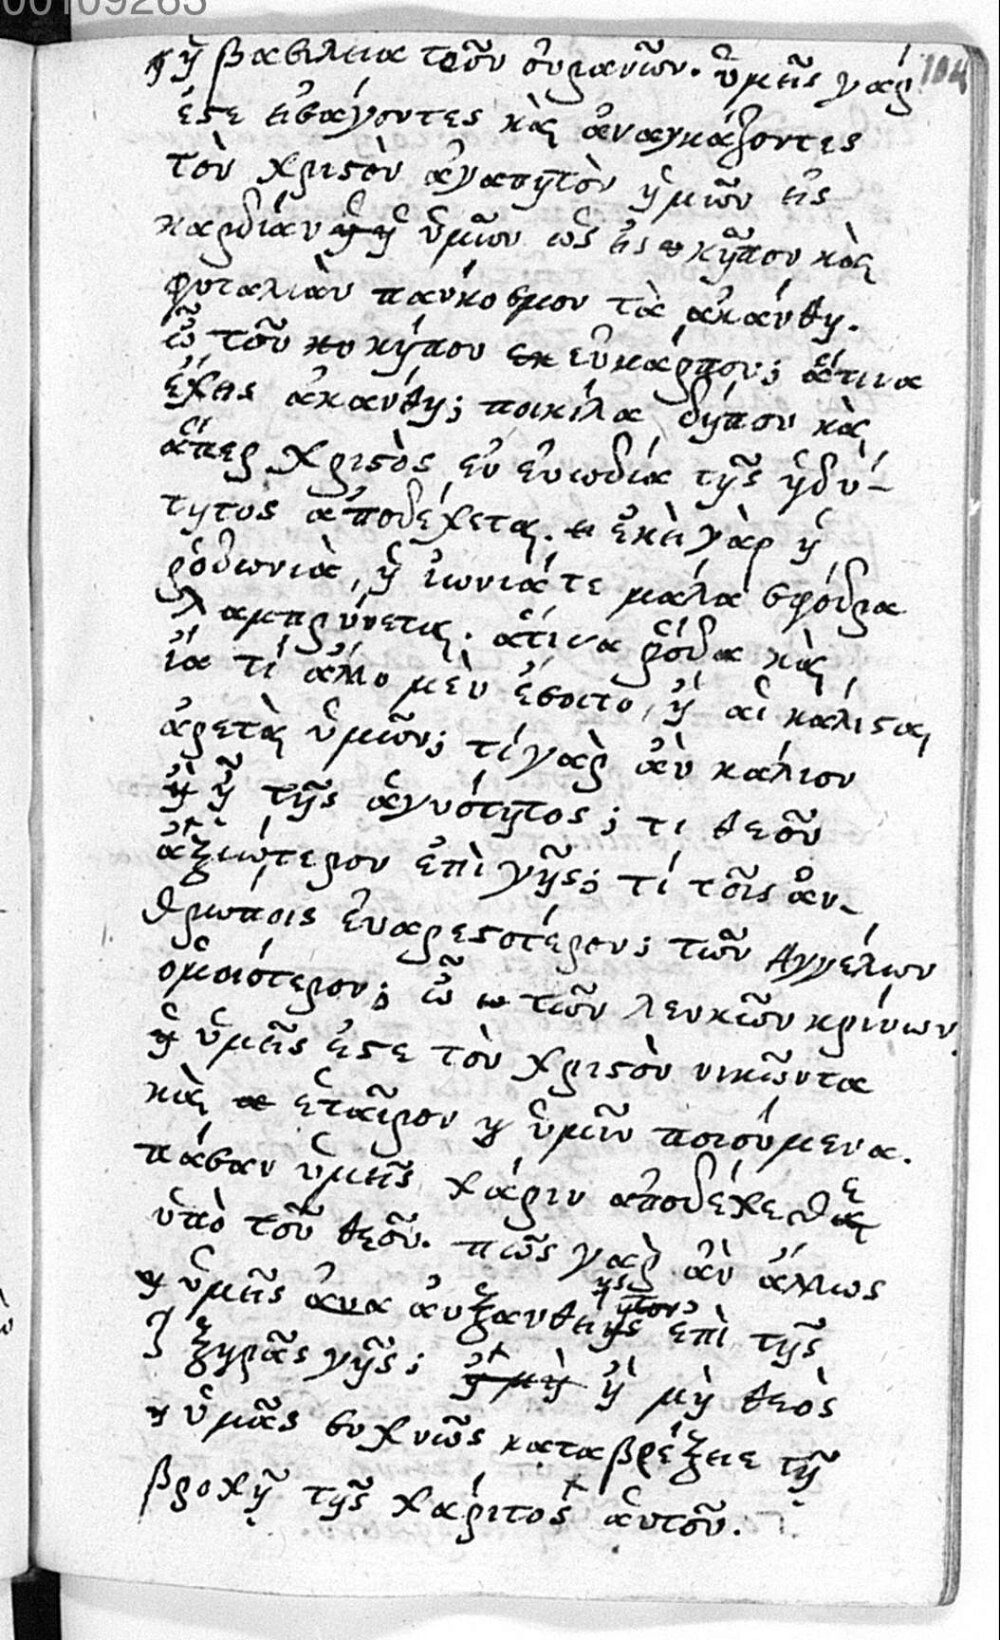 00109263
104
ἡ βασιλεια τῶν οὐρανῶν. ὑμεῖς γάρ
ἐςε εἰσάγοντες καὶ ἀναγκάζοντες
τὸν χριςὸν ἀγαπητὸν ἡμῶν εἰς
καρδίαν ὑμῶν ὡς εἰς κῆπον καὶ
φυταλιὰν πάνκοσμον τὰ ἀκάνθη.
ὦ τοῦ κήπου εὐκάρπου; ἅτινα
ἔχεις ἀκάνθη; ποικίλα δήπου καὶ
ἅπερ χριςὸς ἐν εὐωδία τῆς ἡδύ-
τητος ἀποδέχεται. ἐκεὶ γὰρ ἡ
ῥοδωνιὰ, ἡ ἰωνιά τε μάλα σφόδρα
λαμπρύνεται. ἅτινα ῥόδα καὶ
ἴα τί ἄλλο μὲν ἔσοιτο, ἢ αἱ κάλιςαι
ἀρεταὶ ὑμῶν; τί γαρ ἂν κάλιον
ἢ τῆς ἁγνότητος; τι θεοῦ
ἀξιώτερον ἐπὶ γῆς; τί τοῖς ἀν-
θρώποις εὐαρεςοτέρον; τῶν Ἀγγέλων
ὁμοιότερον; ὦ τῶν λευκῶν κρίνων.
ὑμεῖς ἐςε τὸν χριςὸν νικῶντα
καὶ ἑταῖρον ὑμῶν ποιούμενα.
πάσαν ὑμεῖς χάριν ἀποδέχεσθε
ὑπὸ τοῦ θεοῦ. πῶς γαρ ἂν ἄλλως
ὑμεῖς ἀυξανθει ἐπὶ τῆς
ξηρᾶς γῆς; ἢ μὴ θεὸς
ὑμᾶς συχνῶς καταβρέξειε τῇ
βροχῇ τῆς χάριτος ἁυτοῦ.